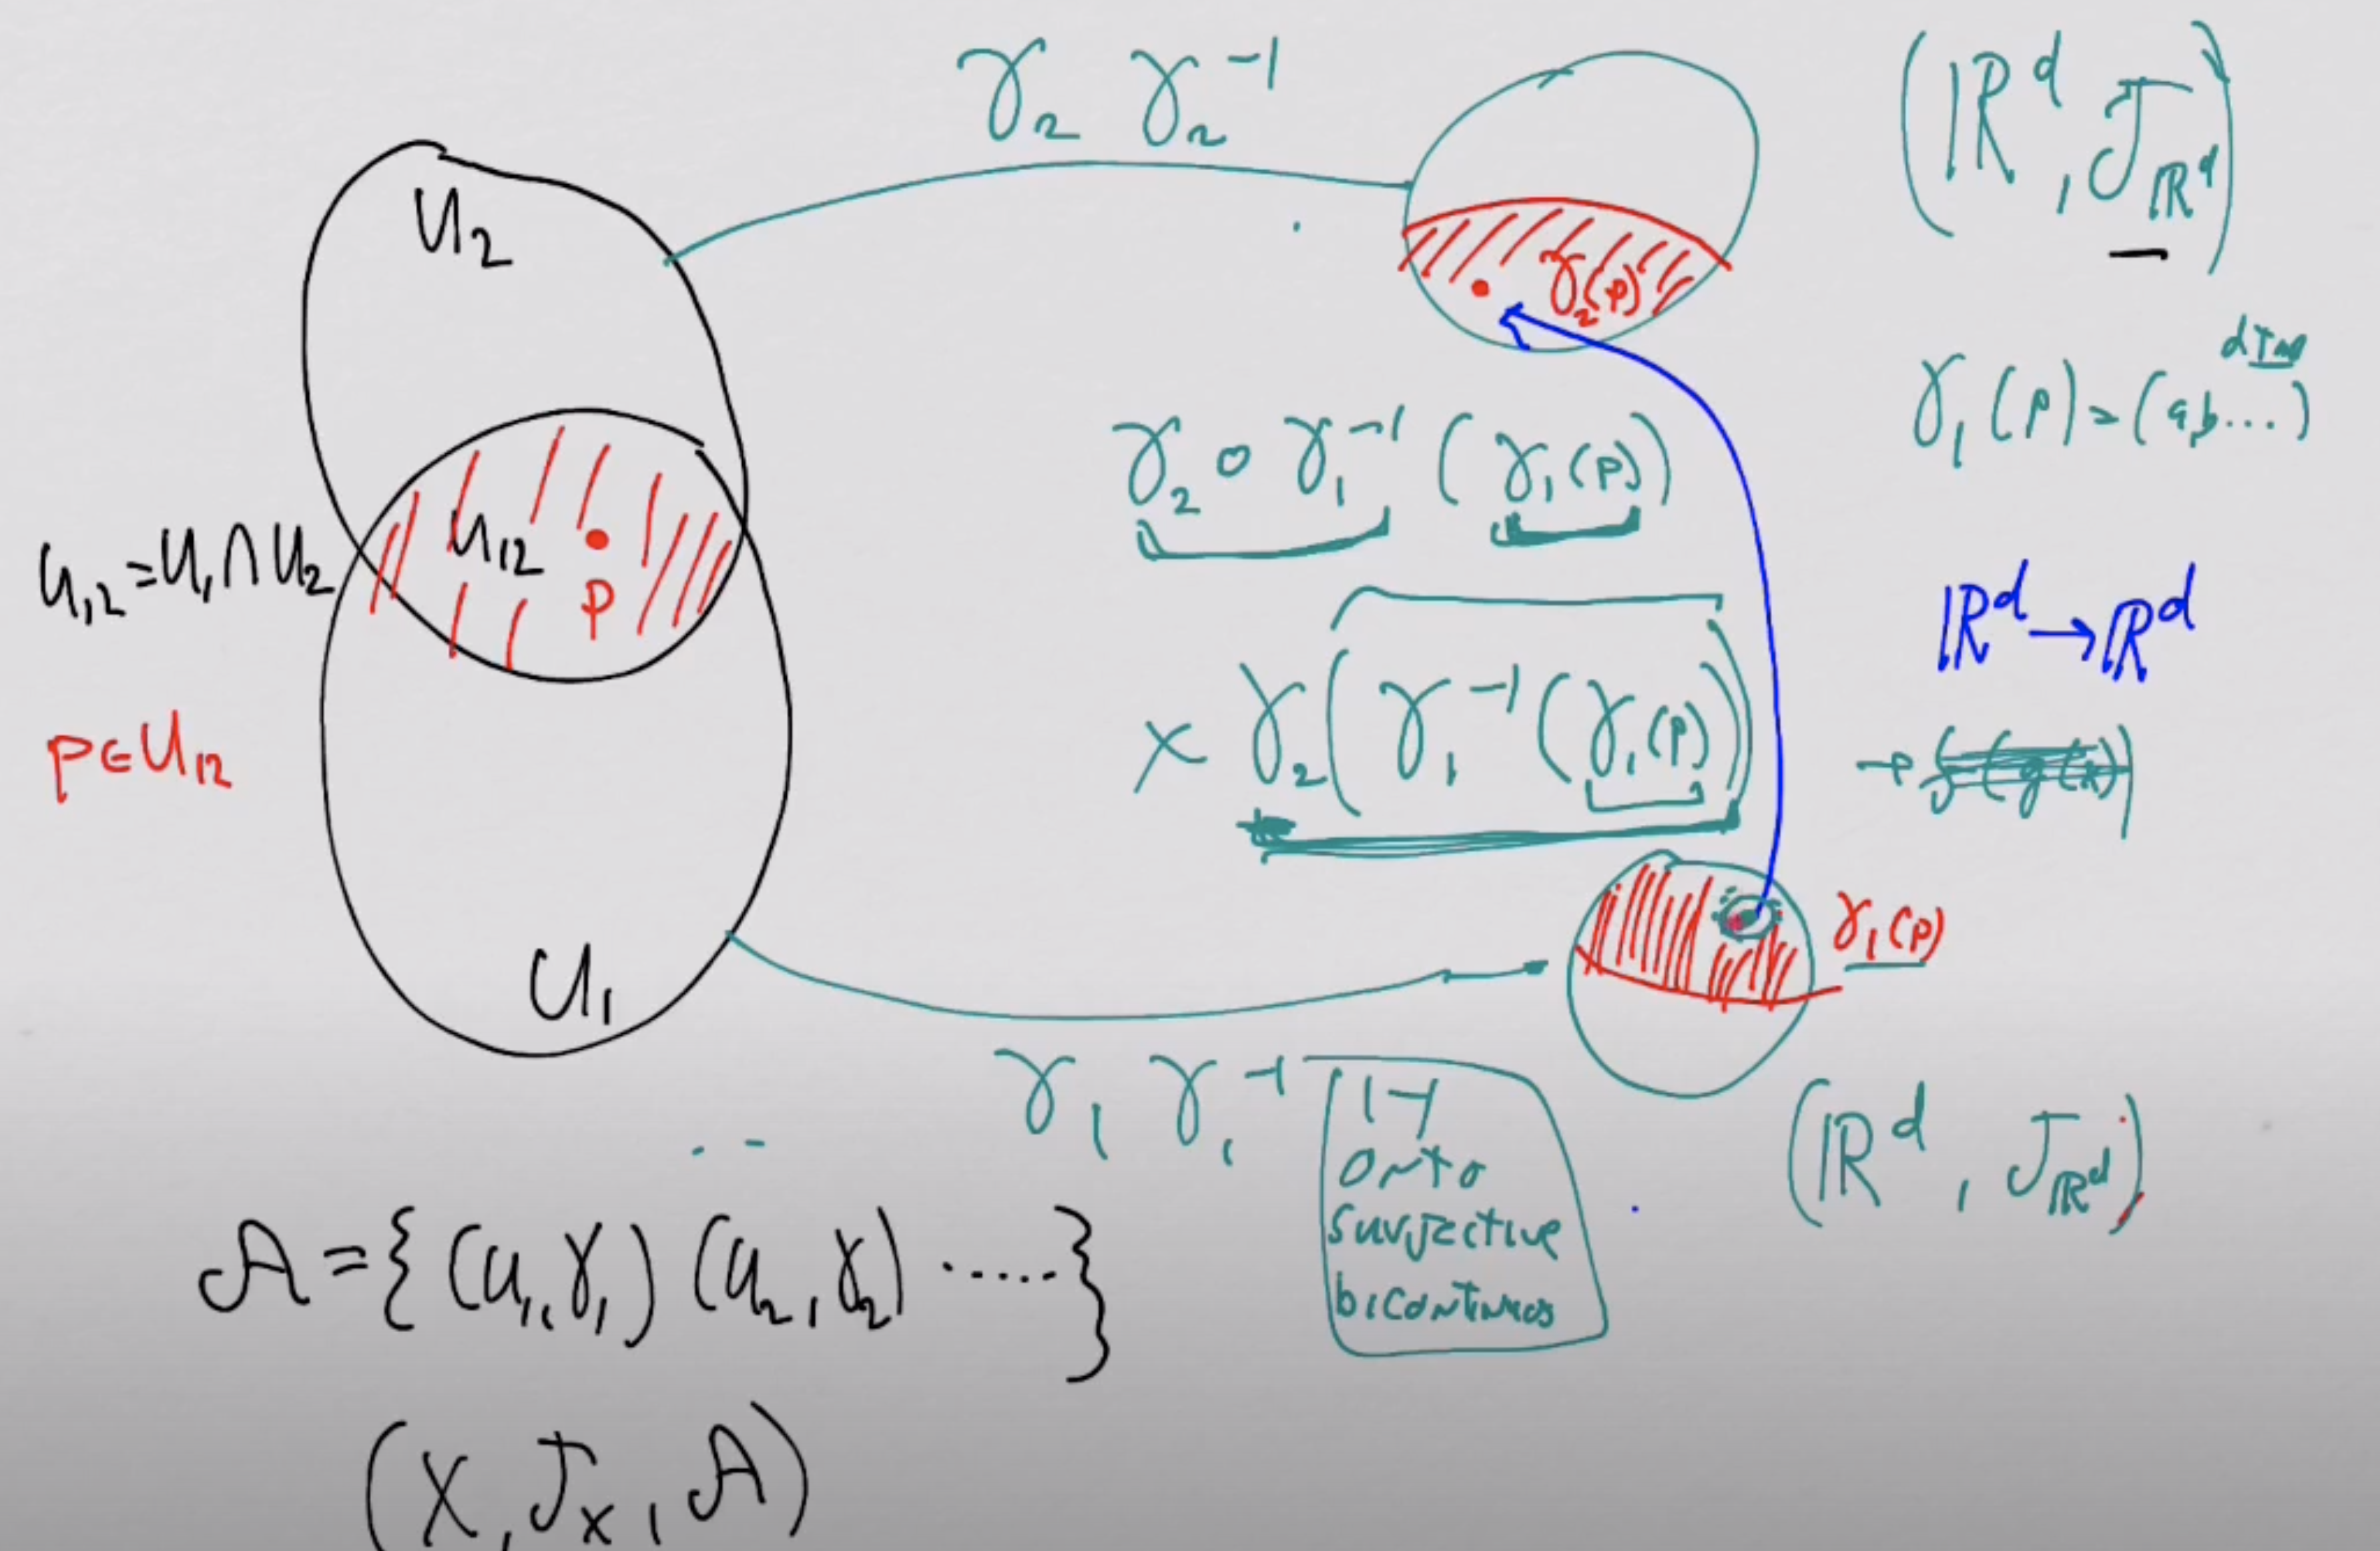 γ₂ γ₂⁻¹
(ℝᵈ, 𝒥_ℝᵈ)
U₂
γ₂(p)
dim
γ₁(p) = (a,b...)
γ₂ ∘ γ₁⁻¹ (γ₁(p))
U₁₂ = U₁ ∩ U₂
U₁₂
p
ℝᵈ → ℝᵈ
p ∈ U₁₂
× γ₂(γ₁⁻¹(γ₁(p))
→ f(g(x))
γ₁(p)
U₁
γ₁ γ₁⁻¹
1-1
onto
surjective
bicontinuos
(ℝᵈ, 𝒥_ℝᵈ)
𝒜 = {(U₁, γ₁) (U₂, γ₂) .....}
(X, 𝒥ₓ, 𝒜)